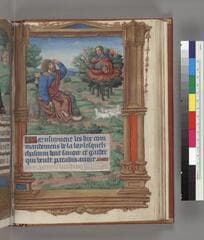 Sensuyuent les dix com
mandemens de la loy lesquelz
chascun doit sauoir et garder
qui veult paradis auoir